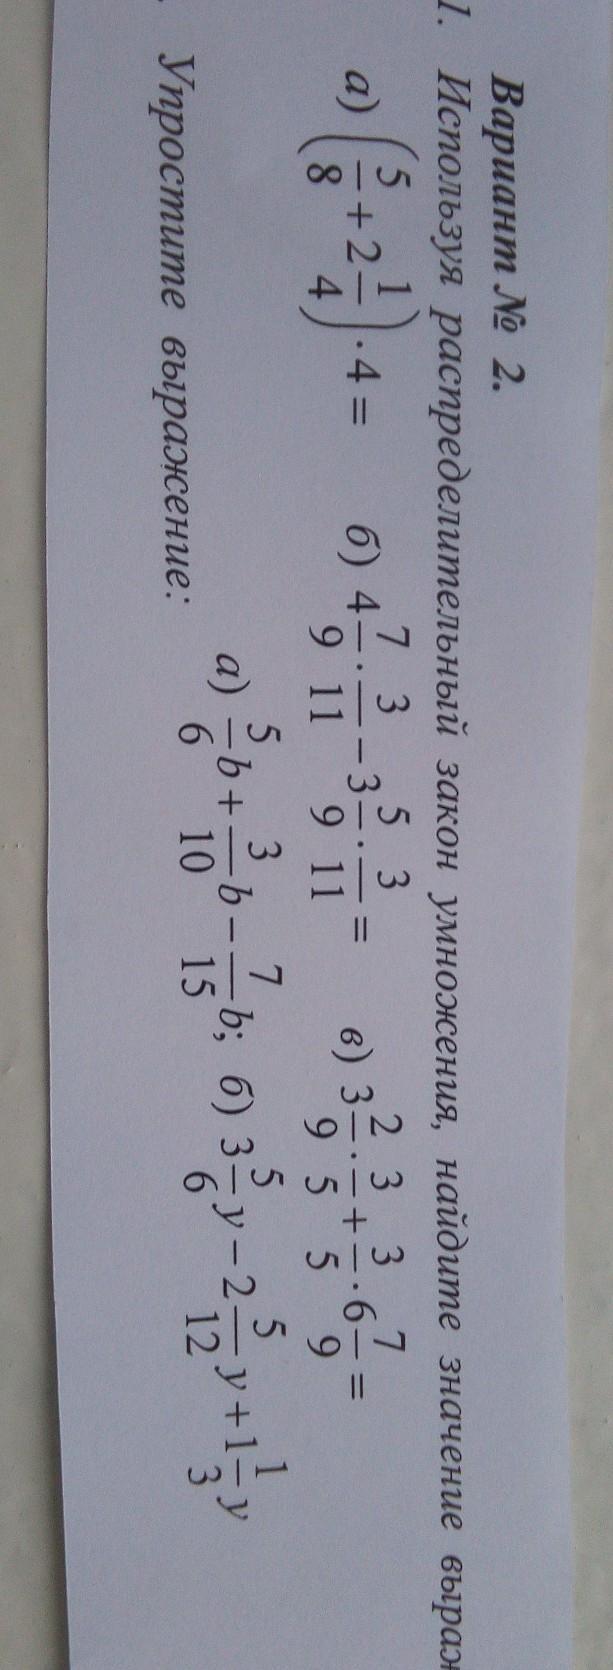 Вариант № 2.
1. Используя распределительный закон умножения, найдите значение выраж
а) (5/8 + 2 1/4) · 4 = б) 4 7/9 · 3/11 − 3 5/9 · 3/11 = в) 3 2/9 · 3/5 + 3/5 · 6 7/9 =
. Упростите выражение:
а) 5/6 b + 3/10 b − 7/15 b; б) 3 5/6 y − 2 5/12 y + 1 1/3 y